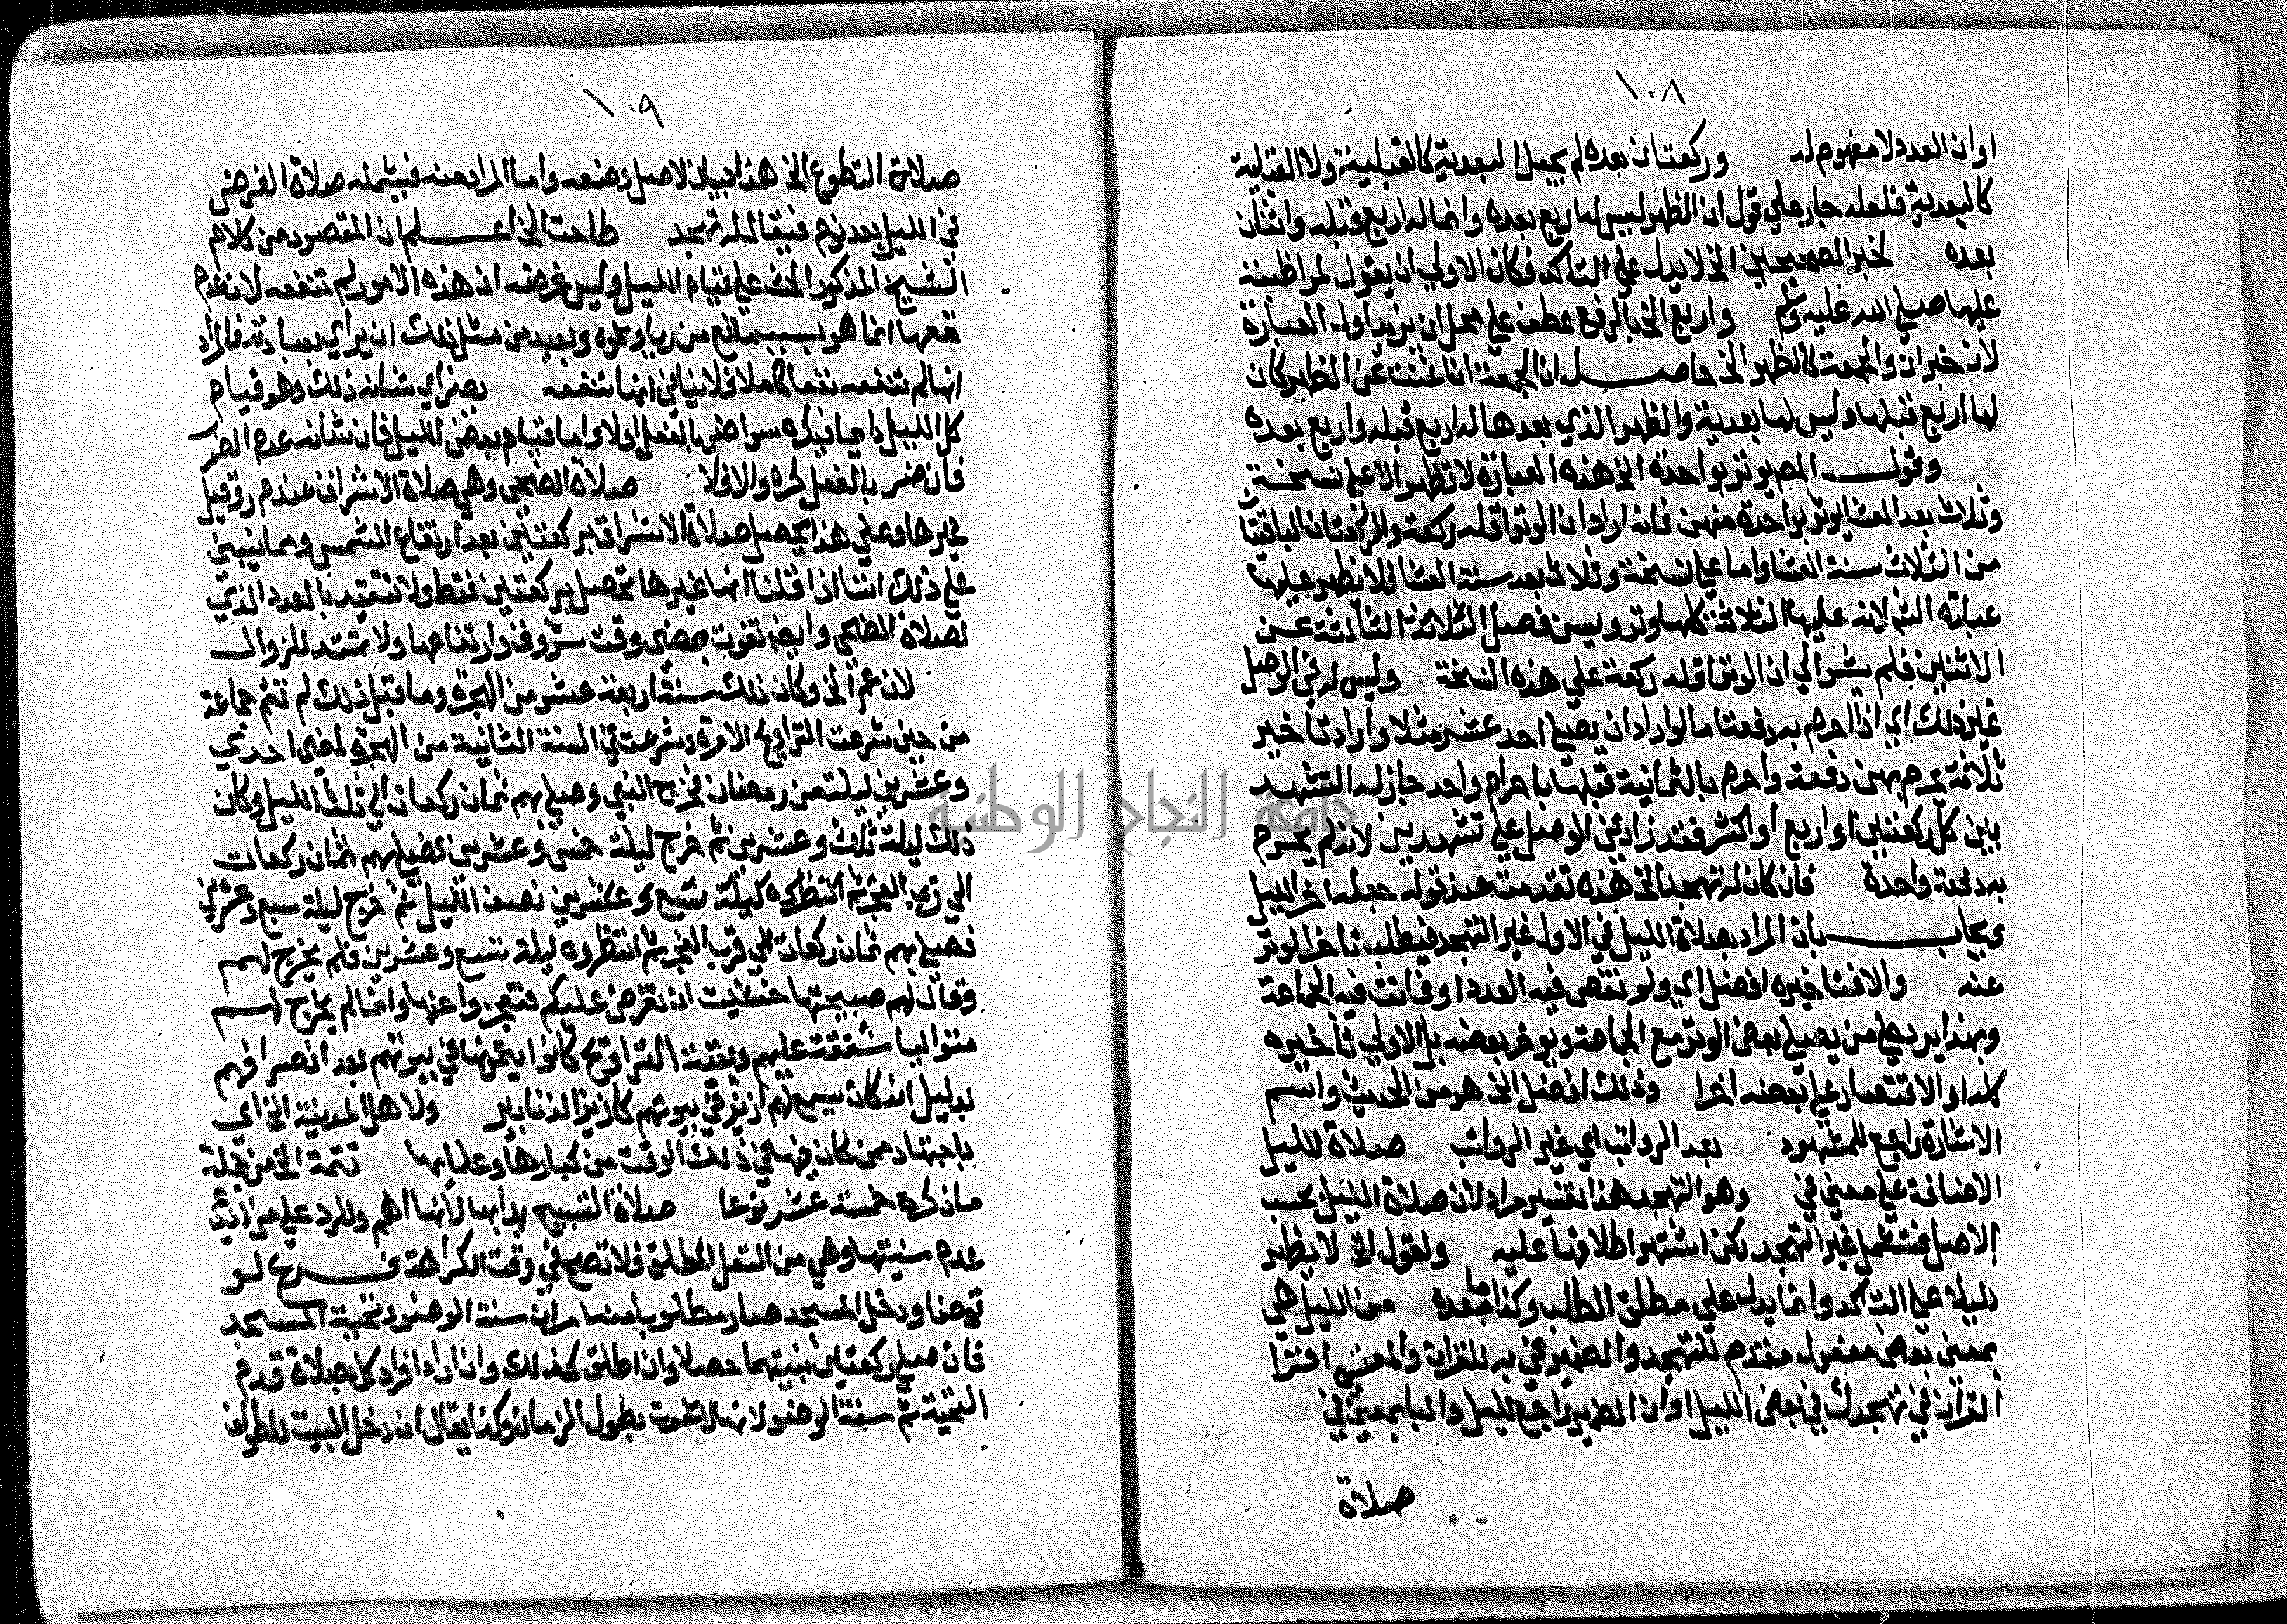 ١٠٨
او ان العدد لا مفهوم له وركعتان بعده لم يجعل البعدية كالقبلية ولا القبلية
كالبعدية فلعله جار علي قول ان الظهر ليس له اربع بعده وانما له اربع قبله واثنتان
بعده لخبر الصحيحين الخ لا يدل علي التاكد فكان الاولي ان يقول لمواظبته
عليها صلي الله عليه وسلم واربع الخ بالرفع عطف علي محل ان يزيد اول العبارة
لانه خبر ان والجمعة كالظهر الخ حاصله ان الجمعة ان اغنت عن الظهر كان
لها اربع قبلها وليس لها بعدية والظهر الذي بعدها له اربع قبله واربع بعده
وقول المص يوتر بواحدة الخ هذه العبارة لا تظهر الا علي نسخة
وثلاث بعد العشا يوتر بواحدة منهن فانه اراد ان الوتر اقله ركعة والركعتان الباقيتان
من الثلاث سنة العشا واما علي نسخة وثلاث بعد سنة العشا فلا يظهر عليها
عبارة الش لانه عليها الثلاثة كلها وتر ويسن فصل الثلاثة الثالثة عن
الاثنين فلم يشر الي ان الوتر اقله ركعة علي هذه النسخة وليس له في الوصل
غير ذلك اي اذا احرم به دفعة اما لو اراد ان يصلي احد عشر مثلا واراد تاخير
ثلاثة يحرم بهن دفعة واحرم بالثمانية قبلها باحرام واحد جاز له التشهد
بين كل ركعتين او اربع او اكثر فقد زاد في الوصل علي تشهدين لانه لم يحرم
به دفعة واحدة فان كان له تهجد الخ هذه تقدمت عند قوله جعله اخر الليل
ويجاب بان المراد بصلاة الليل في الاول غير التهجد فيطلب تاخر الوتر
عنه والافتاخيره افضل اي ولو نقص فيه العدد او فاتت فيه الجماعة
وبهذا يرد علي من يصلي بعض الوتر مع الجماعة ويوخر بعضه بل الاولي تاخيره
كله او الاقتصار علي بعضه اخرا وذلك افضل الخ هو من الحديث واسم
الاشارة راجع للمشهود بعد الرواتب اي غير الرواتب صلاة الليل
الاضافة علي معني في وهو التهجد هذا تفسير مراد لان صلاة الليل بحسب
الاصل تشمل غير التهجد لكن اشتهر اطلاقها عليه ولقوله الخ لا يظهر
دليلا علي التاكد وانما يدل علي مطلق الطلب وكذا ما بعده من الليل هي
بمعني بعض مفعول مقدم لتهجد والضمير في به للقران والمعني اقرا
القران في تهجدك في بعض الليل او ان الضمير راجع لليل والبا بمعني في
صلاة
١٠٩
صلاة التطوع الخ هذا بيان لاصل وضعه واما المراد منه فيشمله صلاة الفرض
في الليل بعد نوم فيقال له تهجد طاحت الخ اعلم ان المقصود من كلام
الشيخ المذكور الحث علي قيام الليل وليس غرضه ان هذه الامور لم تنفعه لان عدم
نفعها انما هو بسبب مانع من ريا ونحوه وبعيد من مثل ذلك ان يراي بعبادته فالمراد
انها لم تنفعه نفعا كاملا فلا ينافي انها تنفعه يضر اي شانه ذلك وهو قيام
كل الليل دايما فيكره سوا ضر بالفعل اولا واما قيام بعض الليل فان شانه عدم الضرر
فان ضر بالفعل كره والا فلا صلاة الضحي وهي صلاة الاشراق عند م ر وقيل
غيرها وعلي هذا يحصل صلاة الاشراق بركعتين بعد ارتفاع الشمس ومما ينبني
علي ذلك اننا اذا قلنا انها غيرها تحصل بركعتين فقط ولا تتقيد بالعدد الذي
لصلاة الضحي وايض تفوت بمضي وقت شروق وارتفاعها ولا تمتد للزوال
لان عمر الخ وكان ذلك سنة اربعة عشر من الهجرة وما قبل ذلك لم تقم جماعة
من حين شرعت التراويح الا مرة وشرعت في السنة الثانية من الهجرة لمضي احدي
وعشرين ليلة من رمضان فخرج النبي وصلي بهم ثمان ركعات الي ثلث الليل وكان
ذلك ليلة ثلاث وعشرين ثم خرج ليلة خمس وعشرين فصلي بهم ثمان ركعات
الي نصف الليل ثم خرج ليلة سبع وعشرين
فصلي بهم ثمان ركعات الي قرب الفجر ثم انتظروه ليلة تسع وعشرين فلم يخرج لهم
وقال لهم صبيحتها خشيت ان تفرض عليكم فتعجزوا عنها وانما لم يخرج لهم
متواليا شفقة عليهم وبقيت التراويح كانوا يتمونها في بيوتهم بعد انصرافهم
بدليل انه كان يسمع لهم ازيز في بيوتهم كازيز الدنابير ولاهل المدينة الخ اي
باجتهاد ممن كان فيها في ذلك الوقت من كبارها وعلمايها تتمة الخ من جملة
ما ذكره خمسة عشر نوعا صلاة التسبيح بدا بها لانها اهم وللرد علي من ادعي
عدم سنيتها وهي من النفل المطلق فلا تصح في وقت الكراهة فرع لو
توضا ودخل المسجد صار مطلوبا منه امران سنة الوضوء وتحية المسجد
فان صلي ركعتين بنيتهما حصلا وان اطلق كذلك وان اراد افراد كل بصلاة قدم
التحية ثم سنة الوضو لانها لا تفوت بطول الزمان وكذا يقال ان دخل البيت للطواف
جامعة النجاح الوطنية